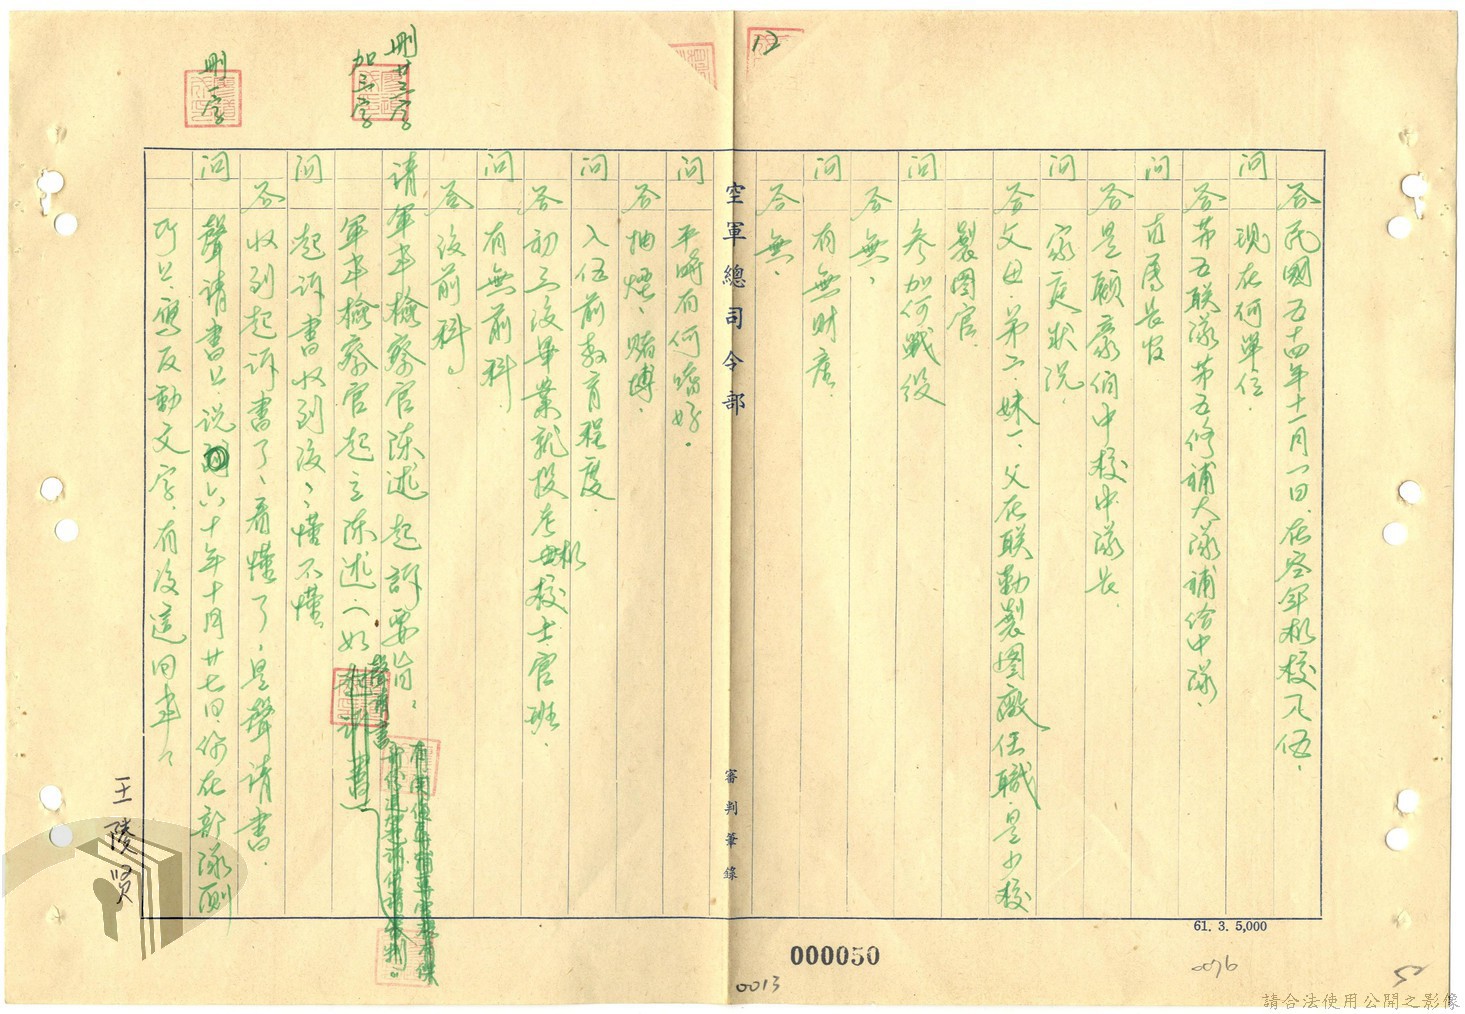 12
答 民國五十四年十一月一日、在空軍机校入伍、
問 現在何單位、
答 第五联隊第五修補大隊補給中隊、
問 直属長官
答 是顧豪伯中校中隊長、
問 家庭狀況、
答 父母、弟二、妹一、父在联勤製图廠任職、是少校
製图官、
問 參加何戰役
答 無、
問 有無財產、
答 無、
空軍總司令部
審判筆錄
問 平時有何嗜好、
答 抽煙、賭博、
問 入伍前教育程度、
答 初三沒畢業就投考机校士官班、
問 有無前科、
答 沒前科。
請軍事檢察官陈述起訴要旨、
刪廿三字
加三字
軍事檢察官起立陈述(如起訴書)
聲請書
問 起訴書收到沒、懂不懂、
答 收到起訴書了、看懂了、是聲請書、
問 聲請書上說六十年十月廿七日、你在部隊厕
刪一字
所上寫反動文字、有沒這回事、
王陵贤
61. 3. 5,000
000050
0013
0076
52
請合法使用公開之影像